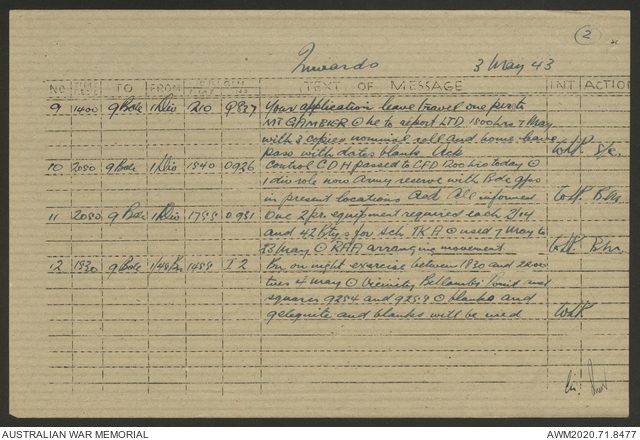 2
Inwards 3 May 43
NO TO FROM TEXT OF MESSAGE INT ACTION
9 1400 9 Bde 1 Div 210 Your application leave travel one pers to
MT GAMBIER he to report LTD 1500 hrs 7 May
with 3 copies nominal roll and home leave
pass with dates blank Ack
10 2050 9 Bde 1 Div 1540 0926 Control CDH passed to CFD 1200 hrs today
1 div role now Army reserve with Bde gps
in present locations All informed
11 2050 9 Bde 1 Div 1755 0931 One 2pr equipment required each
and 42 Btys for sch TKA used 7 May to
13 May RAA arranging movement
12 1930 9 Bde 1/45 Bn 1455 I 2 Bn on night exercise between 1830 and 2200
tues 4 May Vicinity Bellambi Point
squares 9254 and 9255 blanks and
gelegnite and blanks will be used
AUSTRALIAN WAR MEMORIAL AWM2020.71.8477